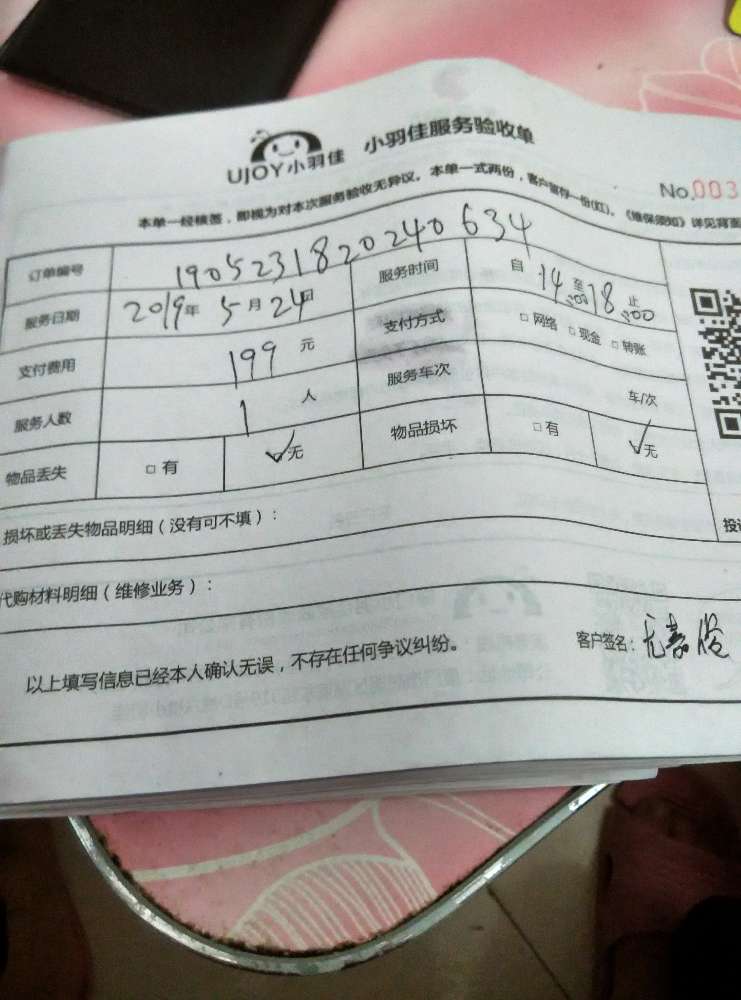 UJOY小羽佳 小羽佳服务验收单
No.003
本单一经核签，即视为对本次服务验收无异议。本单一式两份，客户留存一份(红)。《维保须知》详见背面
订单编号 1905231820240634
服务日期 2019年 5月24日 服务时间 自 14:00 至 18:00 止
支付费用 199 元 支付方式 □网络 □现金 □转账
服务人数 1 人 服务车次 车/次
物品丢失 □有 ✓无 物品损坏 □有 ✓无
损坏或丢失物品明细（没有可不填）：
投
代购材料明细（维修业务）：
以上填写信息已经本人确认无误，不存在任何争议纠纷。 客户签名：